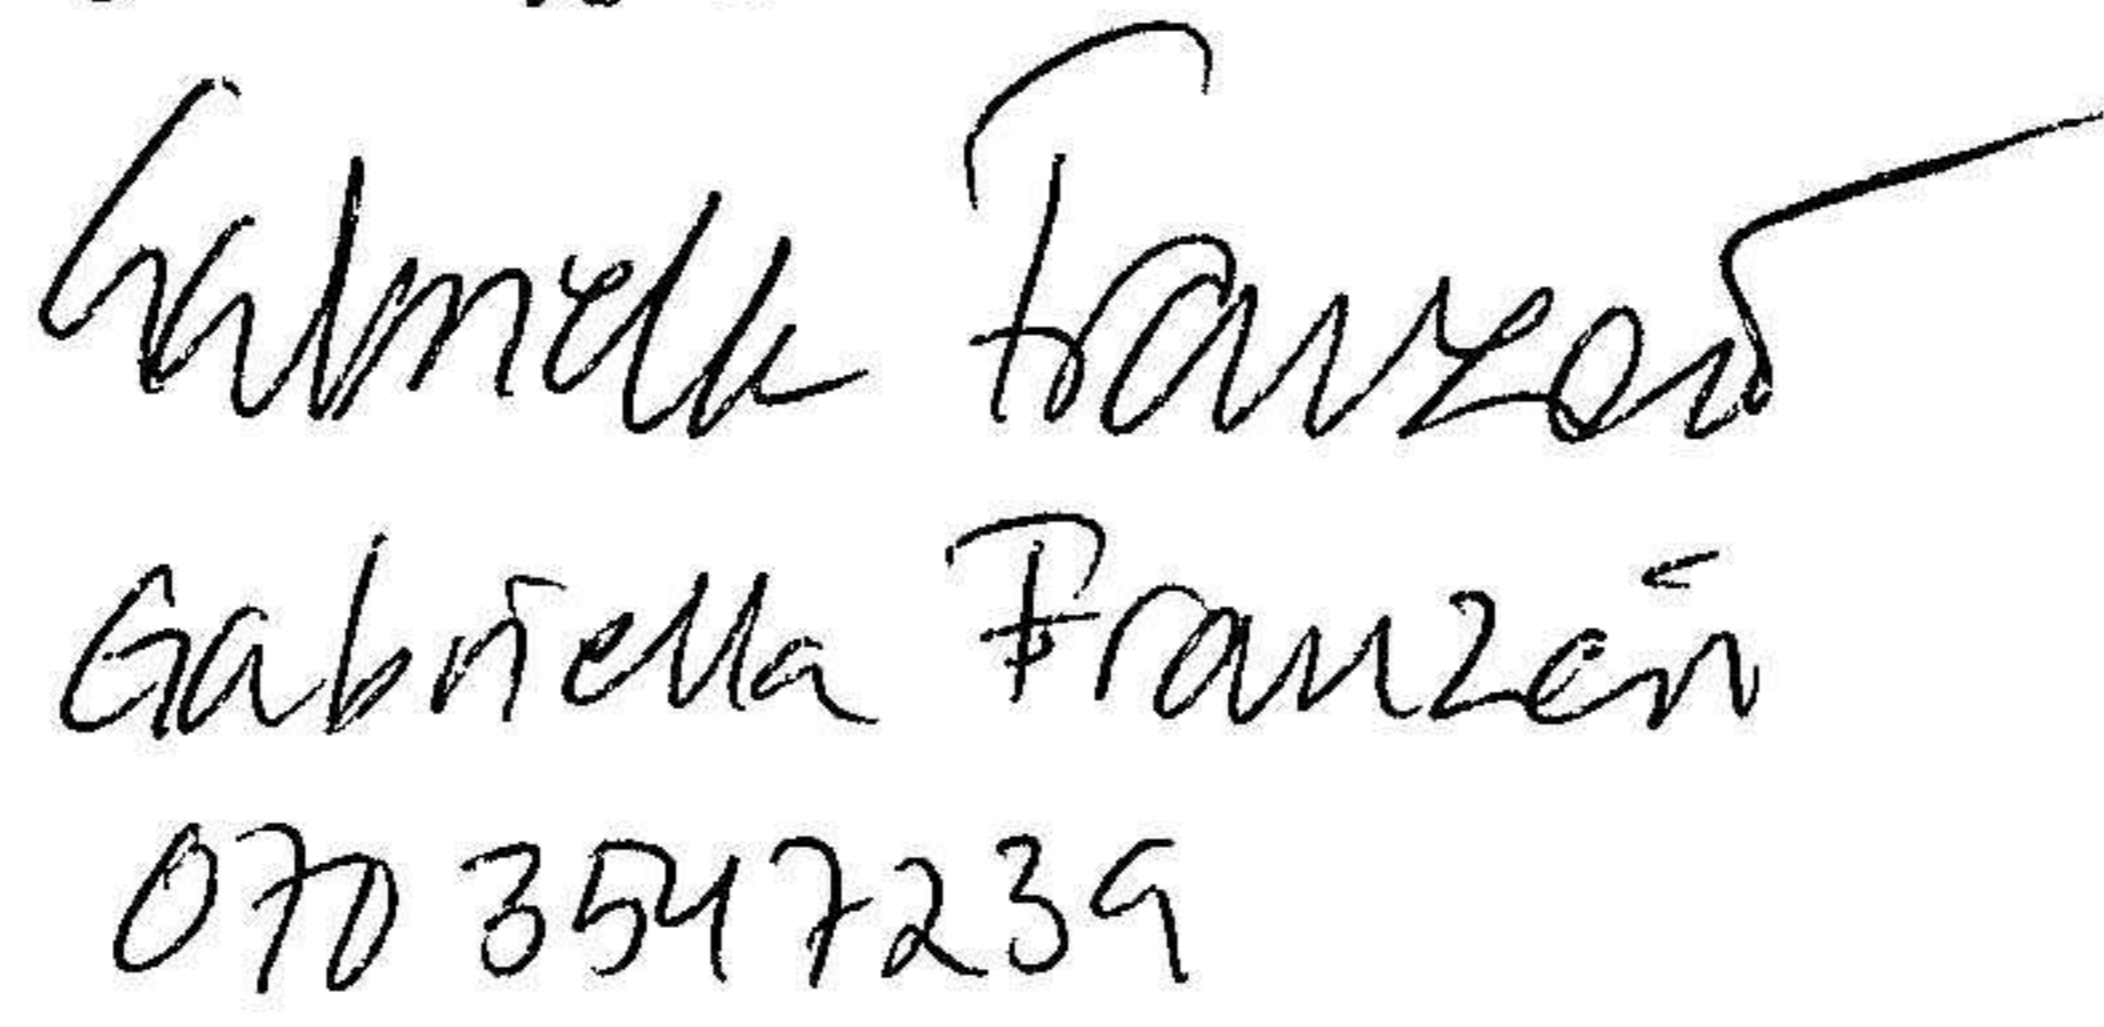 Gabriella Franzén
Gabriella Franzén
070 354 7239